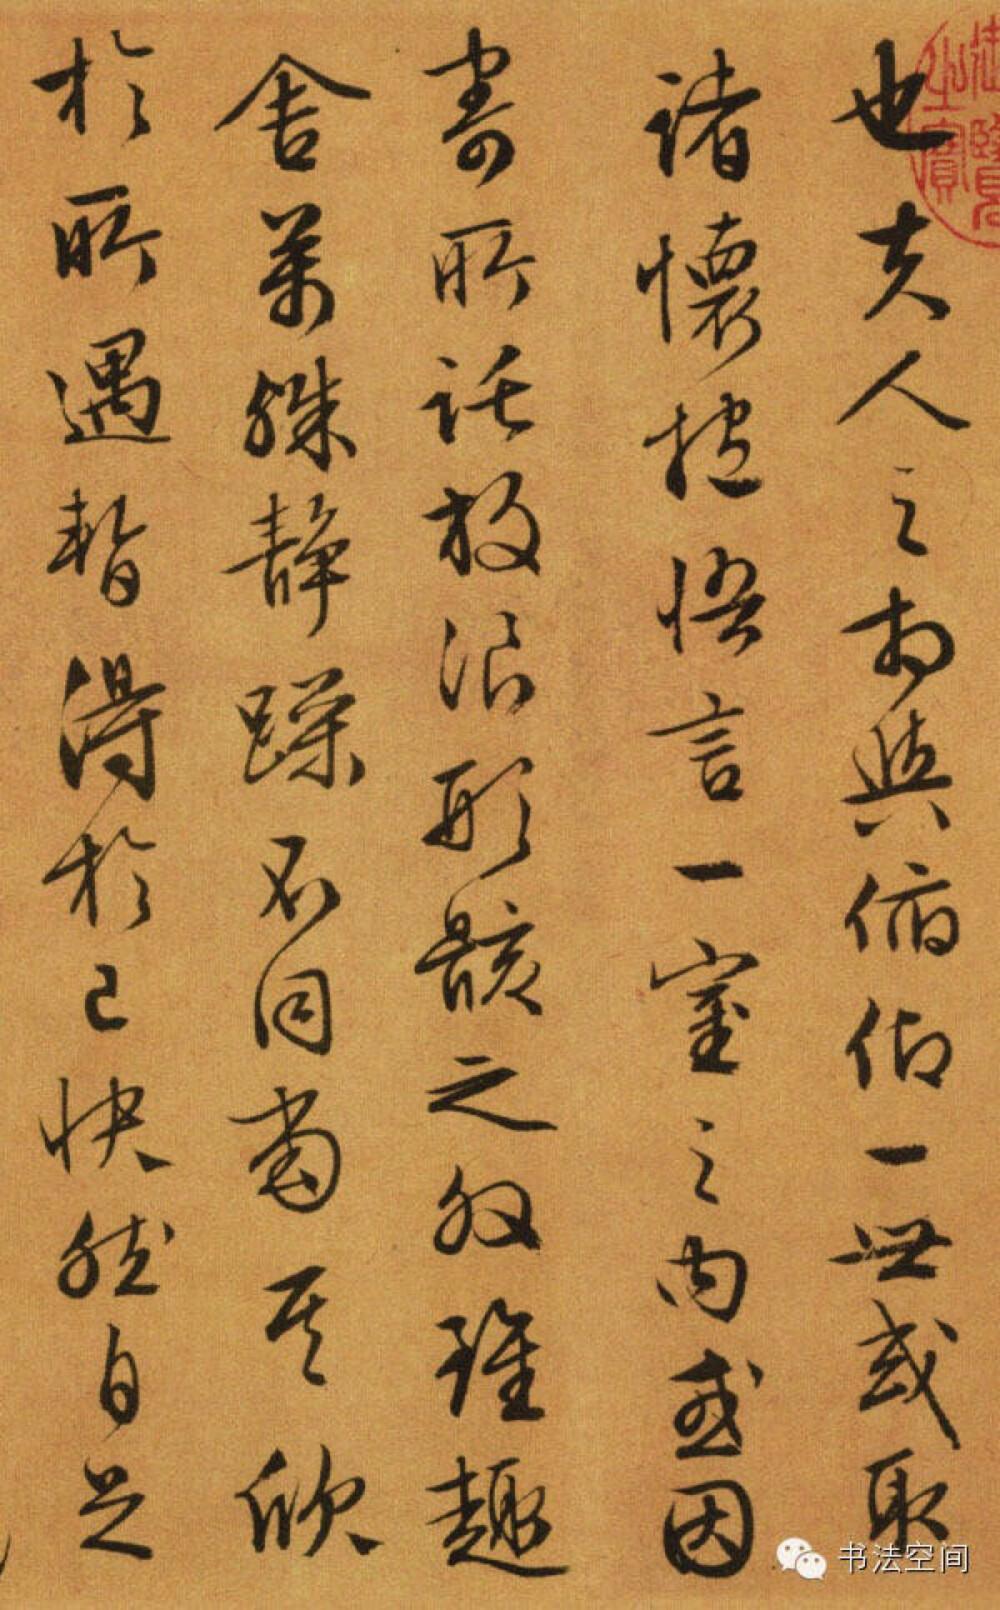 也夫人之相與俯仰一世或取
諸懷抱悟言一室之內或因
寄所託放浪形骸之外雖趣
舍萬殊靜躁不同當其欣
於所遇暫得於己快然自足
御覽
之寶
书法空间